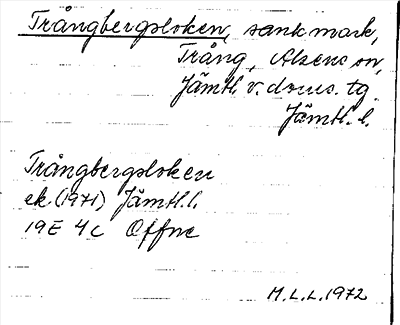 Trångbergsloken, sank mark,
Trång, Alsens sn,
Jämtl v. doms. tg
Jämtl. l.
Trångbergsloken
ek. (1971) Jämtl. l.
19E 4c Offne
M.L.L. 1972